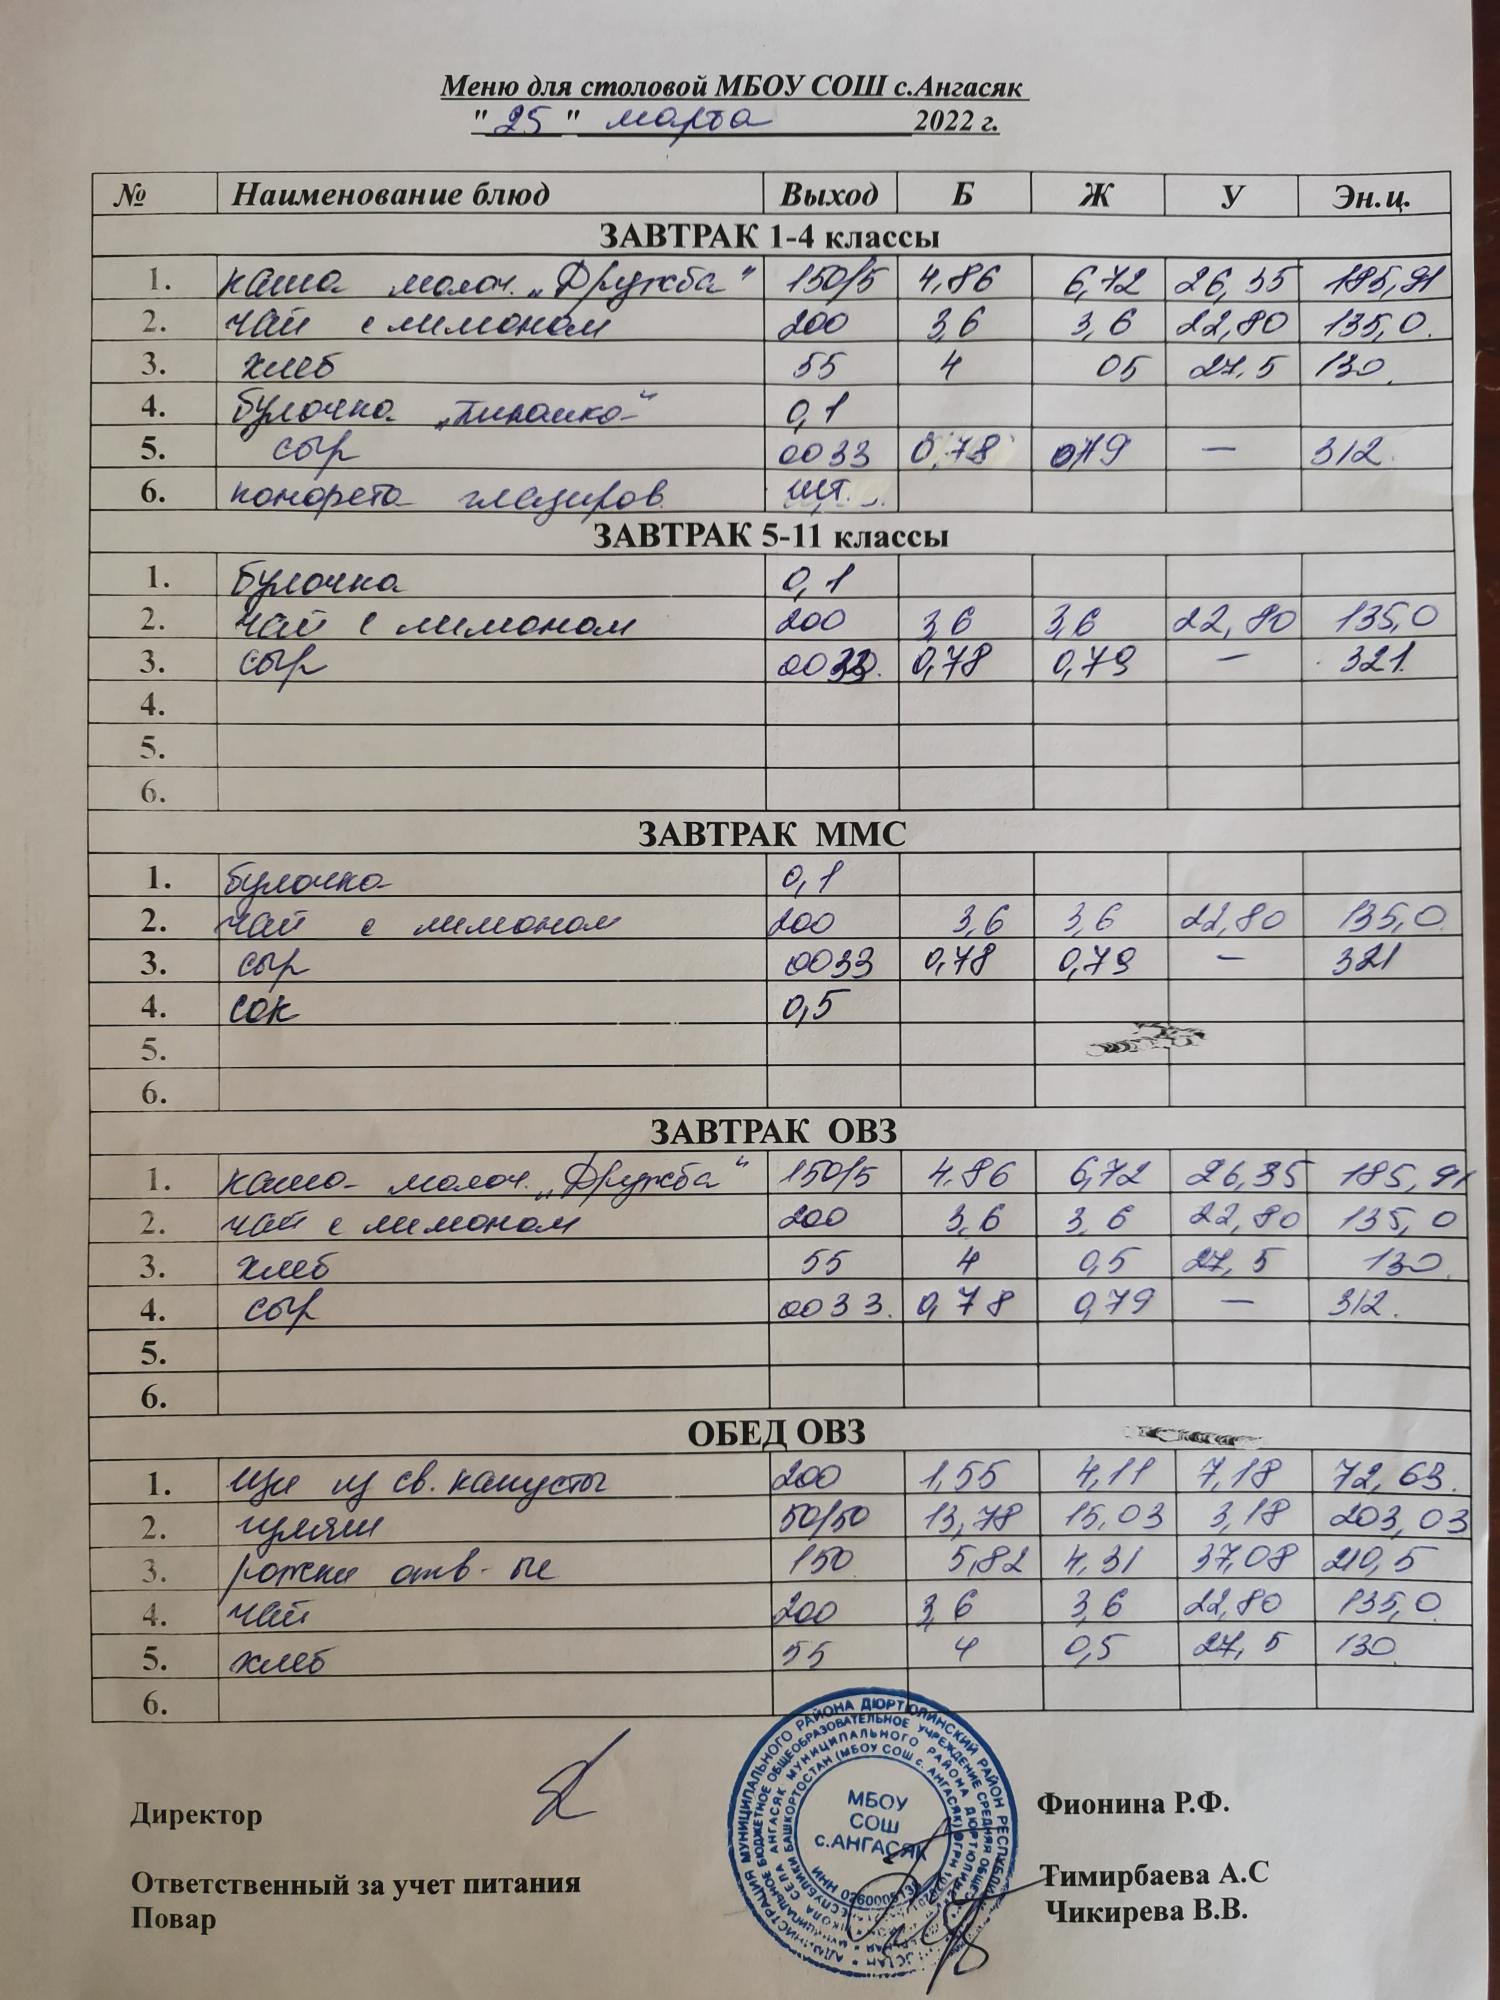 Меню для столовой МБОУ СОШ с.Ангасяк
"25" марта 2022 г.
№ Наименование блюд Выход Б Ж У Эн.ц.
ЗАВТРАК 1-4 классы
1. каша молоч. „Дружба" 150/5 4,86 6,72 26,35 185,91
2. чай с лимоном 200 3,6 3,6 22,80 135,0
3. хлеб 55 4 05 27,5 130
4. булочка 0,1
5. сыр 0033 0,78 — 312
6. глазиров. шт.
ЗАВТРАК 5-11 классы
1. булочка 0,1
2. чай с лимоном 200 3,6 3,6 22,80 135,0
3. сыр 0,78 0,79 — 321
4.
5.
6.
ЗАВТРАК ММС
1. булочка 0,1
2. чай с лимоном 200 3,6 3,6 22,80 135,0
3. сыр 0033 0,78 0,79 — 321
4. сок 0,5
5.
6.
ЗАВТРАК ОВЗ
1. каша молоч. „Дружба" 150/5 4.86 6,72 26,35 185,91
2. чай с лимоном 200 3,6 3,6 22,80 135,0
3. хлеб 55 4 0,5 27,5 130
4. сыр 0033. 0,78 0,79 — 312.
5.
6.
ОБЕД ОВЗ
1. щи из св. капусты 200 1,55 4,11 7,18 72,63.
2. гуляш 50/50 13,78 15,03 3,18 203,03
3. рожки отв-ые 150 5,82 4,31 37,08 210,5
4. чай 200 3,6 3,6 22,80 135,0
5. хлеб 55 4 0,5 27,5 130
6.
МБОУ
СОШ
с.АНГАСЯК
Директор Фионина Р.Ф.
Ответственный за учет питания Тимирбаева А.С
Повар Чикирева В.В.